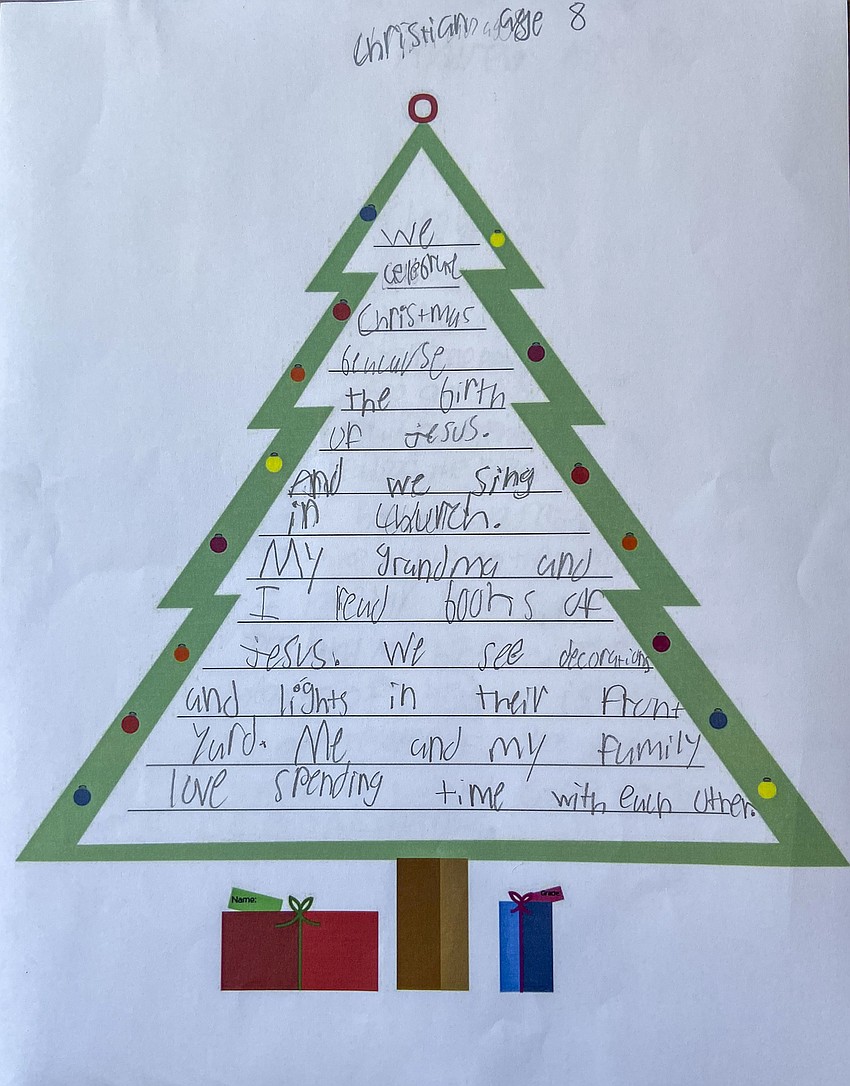 Christian age 8
We
celebrate
Christmas
becuase
the birth
of jesus.
And we sing
in church.
My grandma and
I read books of
jesus. We see decorations
and lights in their front
yard. Me and my family
love spending time with each other.
Name:
Grade: